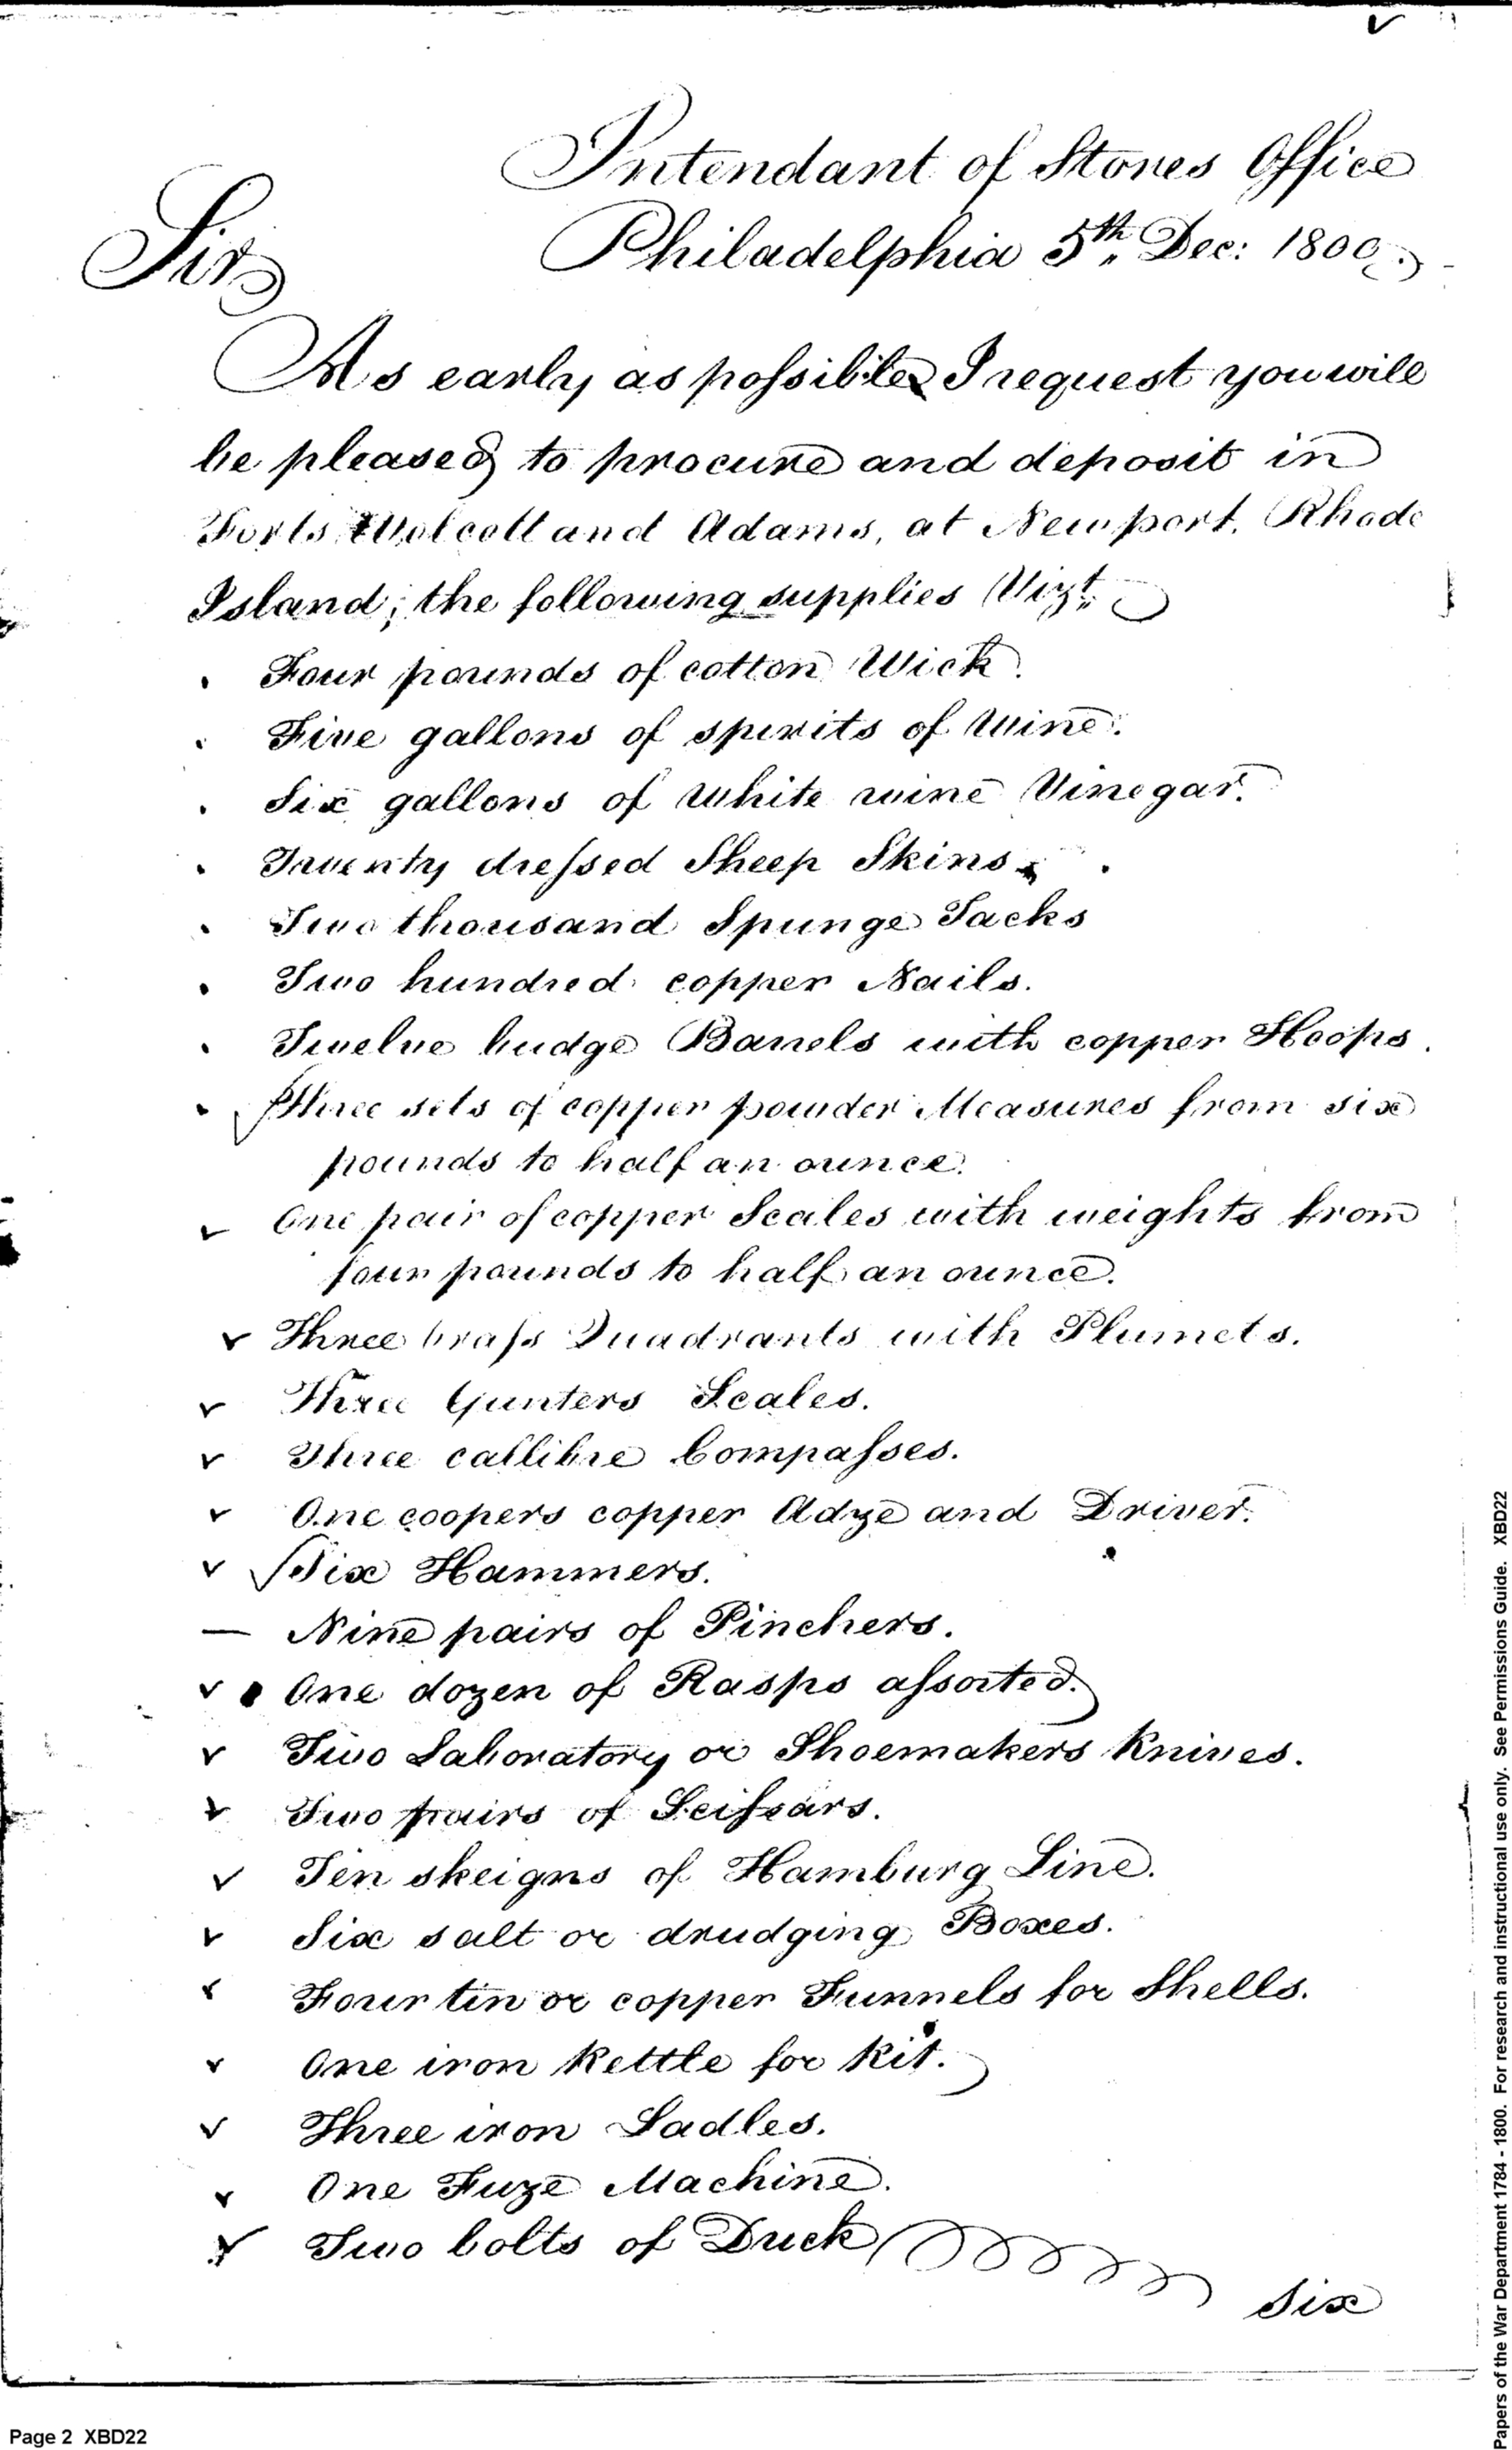 Intendant of Stores Office
Philadelphia 5th Dec: 1800.
Sir
As early as possible I request you will
be pleased to procure and deposit in
Forts Wolcott and Adams, at Newport, Rhode
Island; the following supplies Vizt.
Four pounds of cotton Wick.
Five gallons of spirits of Wine.
Six gallons of White wine Vinegar.
Twenty dressed Sheep Skins.
Two thousand Spunge Tacks
Two hundred copper Nails.
Twelve budge Barrels with copper Hoops.
Three sets of copper powder Measures from six
pounds to half an ounce.
One pair of copper Scales with weights from
four pounds to half an ounce.
Three brass Quadrants with Plumets.
Three Gunters Scales.
Three callibre Compasses.
One coopers copper Adze and Driver.
Six Hammers.
Nine pairs of Pinchers.
One dozen of Rasps assorted.
Two Laboratory or Shoemakers Knives.
Two pairs of Scissars.
Ten skeigns of Hamburg Line.
Six salt or drudging Boxes.
Four tin or copper Funnels for Shells.
One iron Kettle for Kit.
Three iron Ladles.
One Fuze Machine.
Two bolts of Duck
Six
Page 2 XBD22
Papers of the War Department 1784 - 1800. For research and instructional use only. See Permissions Guide. XBD22